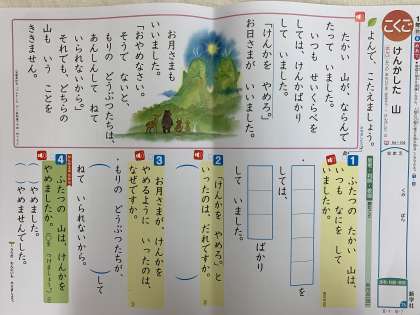 こくご
けんかした 山
よんで、こたえましょう。
たかい 山が、ならんで
たって いました。
いつも せいくらべを
しては、けんかばかり
して いました。
「けんかを やめろ。」
お日さまが いいました。
お月さまも
いいました。
「おやめなさい。
そうで ないと、
もりの どうぶつたちは、
あんしんして ねて
いられないから。」
それでも、どちらの
山も いう ことを
ききません。
1
ふたつの たかい 山は、
いつも なにを して
いましたか。
しては、
ばかり
して いました。
2
「けんかを やめろ。」と
いったのは、だれですか。
3
お月さまが、けんかを
やめるように いったのは、
なぜですか。
・もりの どうぶつたちが、
( )して
ねて いられないから。
4
ふたつの 山は、けんかを
やめましたか。
( )やめました。
( )やめませんでした。
くみ
ばん
新学社